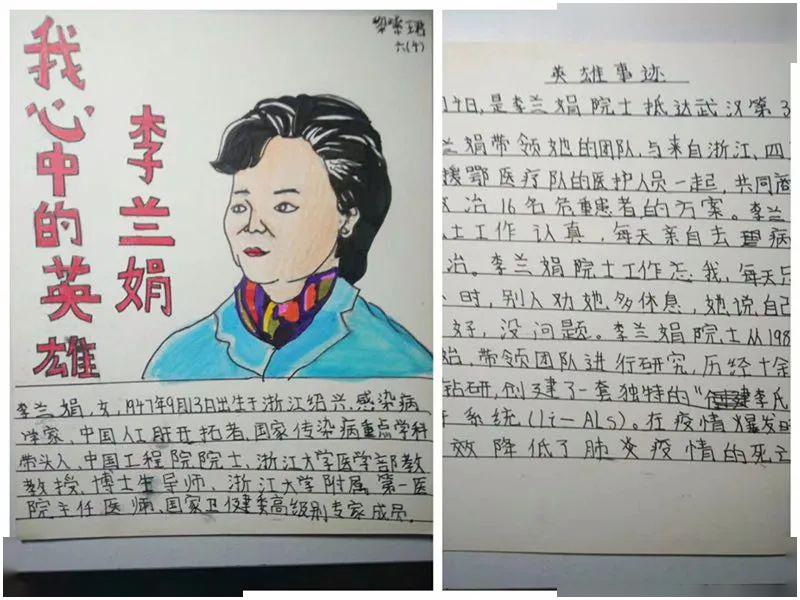 我心中的英雄
李兰娟
六(4)
李兰娟,女,1947年9月13日出生于浙江绍兴,感染病
学家、中国人工肝开拓者、国家传染病重点学科
带头人、中国工程院院士、浙江大学医学部教
教授、博士生导师、浙江大学附属第一医
院主任医师、国家卫健委高级别专家成员。
英雄事迹
月4日,是李兰娟院士抵达武汉第3
兰娟带领她的团队,与来自浙江、四
援鄂医疗队的医护人员一起,共同商
治16名危重患者的方案。李兰
士工作认真,每天亲自去
治。李兰娟院士工作忘我,每天只
时,别人劝她多休息,她说自己
好,没问题。李兰娟院士从198
治,带领团队进行研究,历经十余
钻研,创建了一套独特的“李氏
系统(li-ALS)。在疫情爆发时
效降低了肺炎疫情的死亡